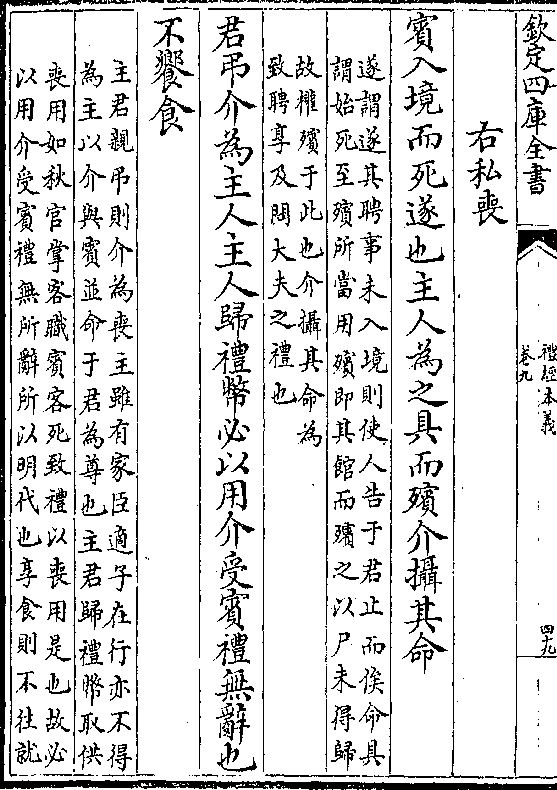 欽定四庫全書
禮經本義
卷九
四九
右私喪
賓入境而死遂也主人為之具而殯介攝其命
遂謂遂其聘事未入境則使人告于君止而俟命具
謂始死至殯所當用殯即其館而殯之以尸未得歸
故權殯于此也介攝其命為
致聘享及問大夫之禮也
君弔介為主人主人歸禮幣必以用介受賓禮無辭也
不饗食
主君親弔則介為喪主雖有家臣適子在行亦不得
為主以介與賓並命于君為尊也主君歸禮幣取供
喪用如秋官掌客職賓客死致禮以喪用是也故必
以用介受賓禮無所辭所以明代也享食則不往就